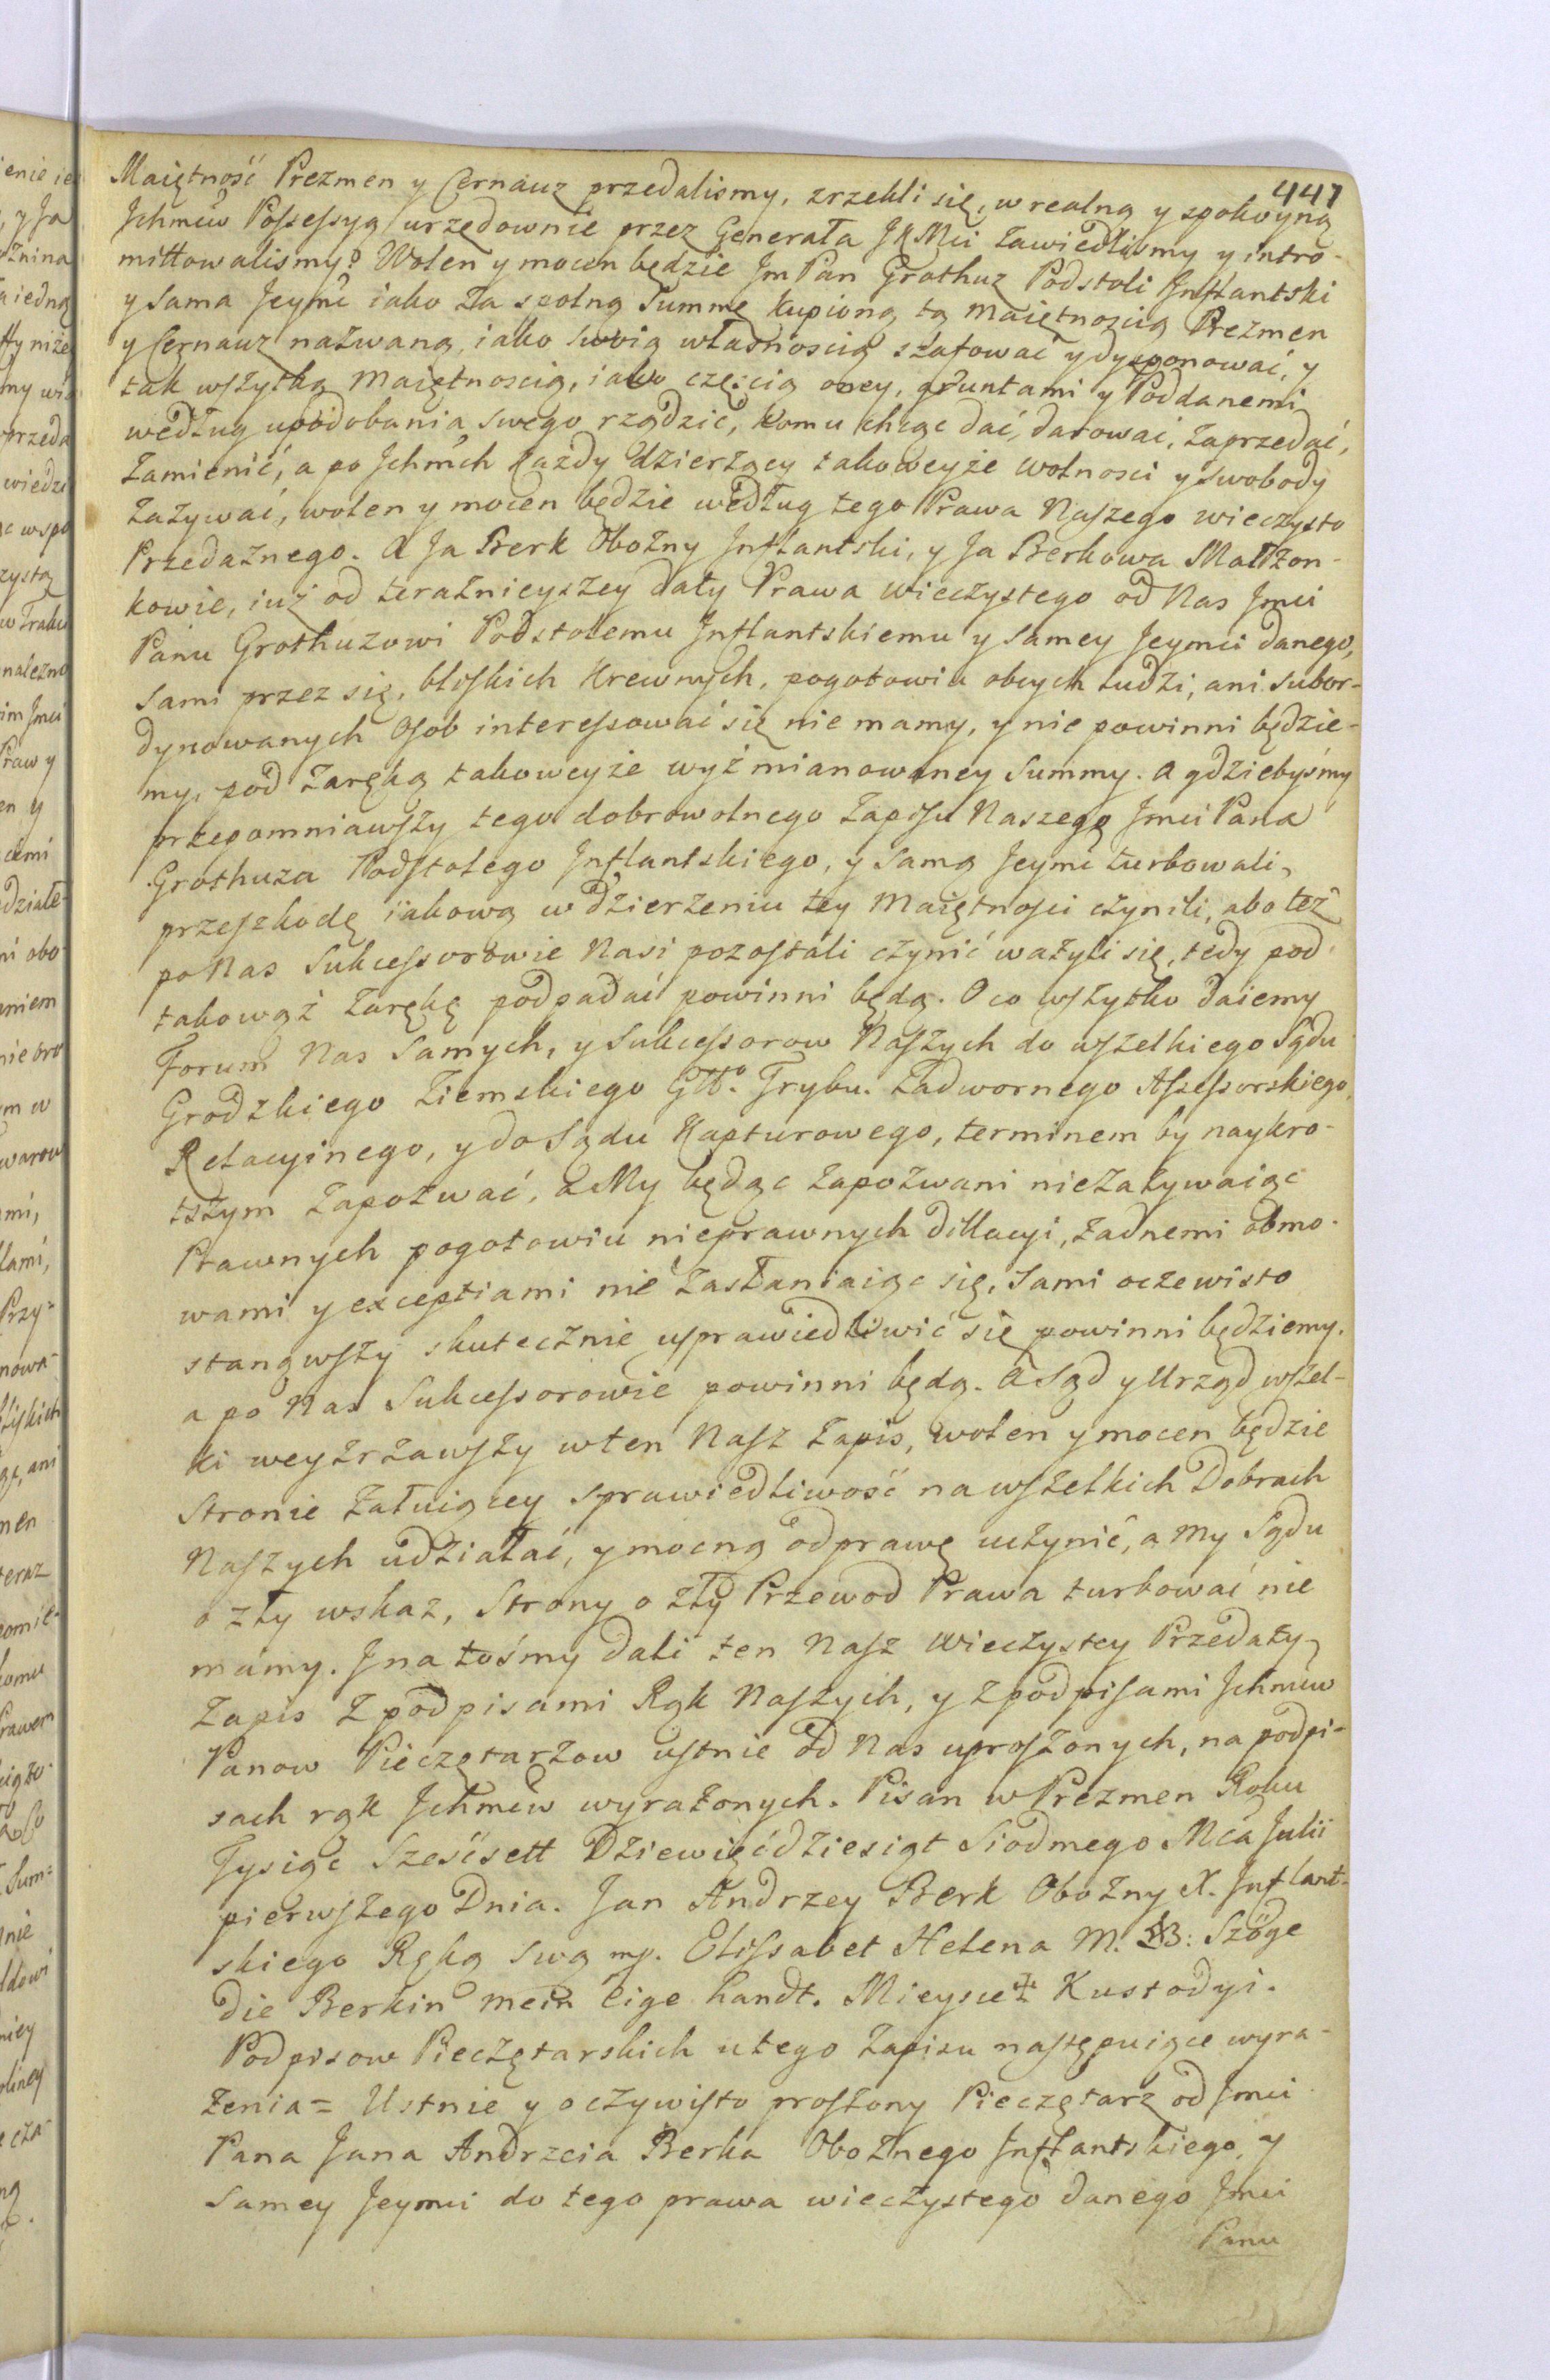 447
Maiętność Prezmen y Cernauz przedalismy, zrzekli się, w realną y spokoyną
Jchmćiw Possessyą urzędownie przez Generała JKMći zawiedlismy y intro-
mittowalismy? Wolen y mocen będzie Jm Pan Grothuz Podstoli Jnflantski
y sama Jeymć iako za spolną Summę kupioną tą maiętnoscią Prezmen
y Cernauz nazwaną, iako swoią własnoscią szafować y dysponować, y
tak wszytką maiętnoscią, iako częscią oney, gruntami y Poddanemi
według upodobania swego rządzić, komu chcąc dać, darować, zaprzedać,
zamienić, a po Jchmćh każdy dzierżący takoweyże wolnosci y swobody
zażywać, wolen y mocen będzie według tego Prawa Naszego wieczysto
Przedażnego. A Ja Berk Obożny Jnflantski, y Ja Berkowa Małżon-
kowie, iuż od teraźnieyszey daty Prawa wieczystego od Nas Jmći
Panu Grothuzowi Podstolemu Jnflantskiemu y samey Jeymći danego,
sami przez się, bliskich Krewnych, pogotowiu obcych ludzi, ani subor-
dynowanych Osob interessować się nie mamy, y nie powinni będzie-
my, pod zaręką takoweyże wyż mianowaney Summy. A gdziebyśmy
przepomniawszy tego dobrowolnego Zapisu Naszego Jmći Pana
Grothuza Podstolego Jnflantskiego, y samą Jeymć turbowali,
przeszkodę iakową w dzierżeniu tey Maiętnosci czynili, abo też
po Nas Sukcessorowie Nasi pozostali czynić ważyli się, tedy pod
takowąż zarękę podpadać powinni będą. O co wszytko daiemy
Forum Nas Samych, y Sukcessorow Naszych do wszelkiego Sądu
Grodzkiego Ziemskiego Głło. Trybu. Zadwornego Assessorskiego,
Relacyinego, y do Sądu Kapturowego, terminem by naykro-
tszym Zapozwać, a My będąc Zapozwani niezażywaiąc
Prawnych pogotowiu nieprawnych dillacyi, żadnemi obmo-
wami y exceptiami nie zasłaniaiąc się, sami oczewisto
stanąwszy skutecznie usprawiedliwić się powinni będziemy.
a po Nas Sukcessorowie powinni będą. A Sąd y Urząd wszel-
ki weyzrzawszy w ten Nasz Zapis, wolen y mocen będzie
Stronie żałuiącey sprawiedliwość na wszelkich Dobrach
Naszych udziałać, y mocną odprawę uczynić, a my Sądu
o zły wskaz, Strony o zły Przewod Prawa turbować nie
mamy. Jna tośmy dali ten Nasz Wieczystey Przedaży
Zapis z podpisami Rąk Naszych, y z podpisami Jchmćiw
Panow Pieczętarzow ustnie od Nas uproszonych, na podpi-
sach rąk Jchmćiw wyrażonych. Pisan w Prezmen Roku
Tysiąc Sześćsett Dziewięćdziesiąt Siodmego Mca Julii
pierwszego Dnia. Jan Andrzey Berk Obożny X. Jnflant-
skiego Ręką swą mp. Elissabet Helena M. B: Szöge
die Berkin mein eige handt. Mieysce Kustodyi.
Podpisow Pieczętarskich u tego Zapisu następuiące wyra-
żenia = Ustnie y oczywisto proszony Pieczętarz od Jmći
Pana Jana Andrzeia Berka Obożnego Jnflantskiego, y
samey Jeymći do tego prawa wieczystego danego Jmći
Panu